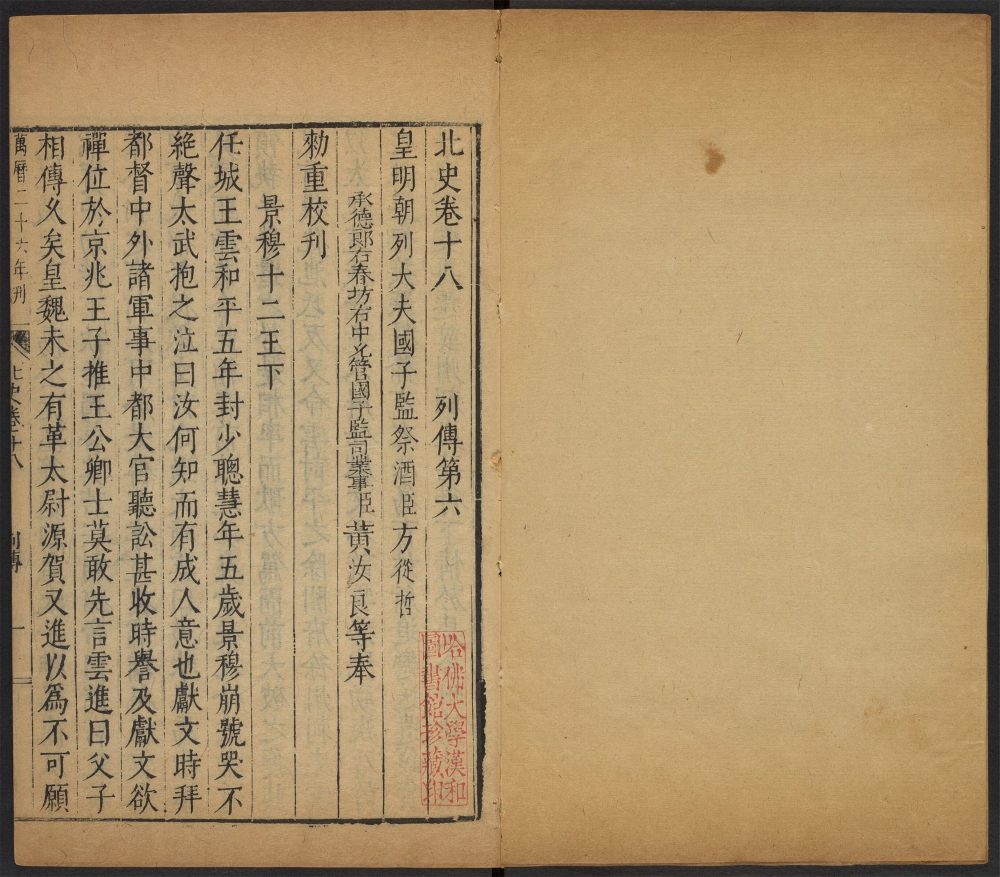 北史卷十八 列傳第六
皇明朝列大夫國子監祭酒臣方從哲
承德郎右春坊右中允管國子監司業事臣黃汝良等奉
勑重校刊
景穆十二王下
任城王雲和平五年封少聰慧年五歲景穆崩號哭不
絶聲太武抱之泣曰汝何知而有成人意也獻文時拜
都督中外諸軍事中都大官聽訟甚收時譽及獻文欲
禪位於京兆王子推王公卿士莫敢先言雲進曰父子
相傳久矣皇魏未之有革太尉源賀又進以爲不可願
萬曆二十六年刊
北史卷十八
列傳
一
哈佛大學漢和
圖書館珍藏印